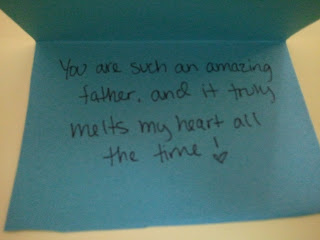 You are such an amazing
father, and it truly
melts my heart all
the time!